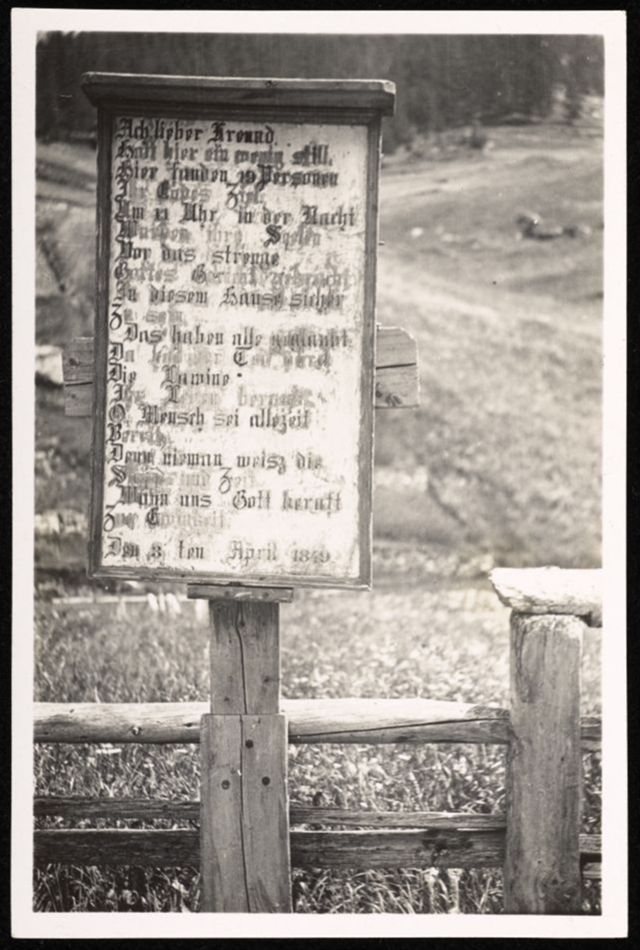 Ach lieber Freund
Halt hier ein wenig still.
Hier fanden 19 Personen
Ihr Endes Ziel
Um 11 Uhr in der Nacht
Wurden ihre Seelen
Vor das strenge
Gottes Gericht gebracht
In diesem Hause sicher
Zu sein
Das haben alle geglaubt
Da
Die Lawine
Ihr Leben beraubt
O Mensch sei allezeit
Bereit
Denn nieman weisz die
Stunde und Zeit
Wann uns Gott beruft
Zur Ewigkeit
Den 3. ten April 1849